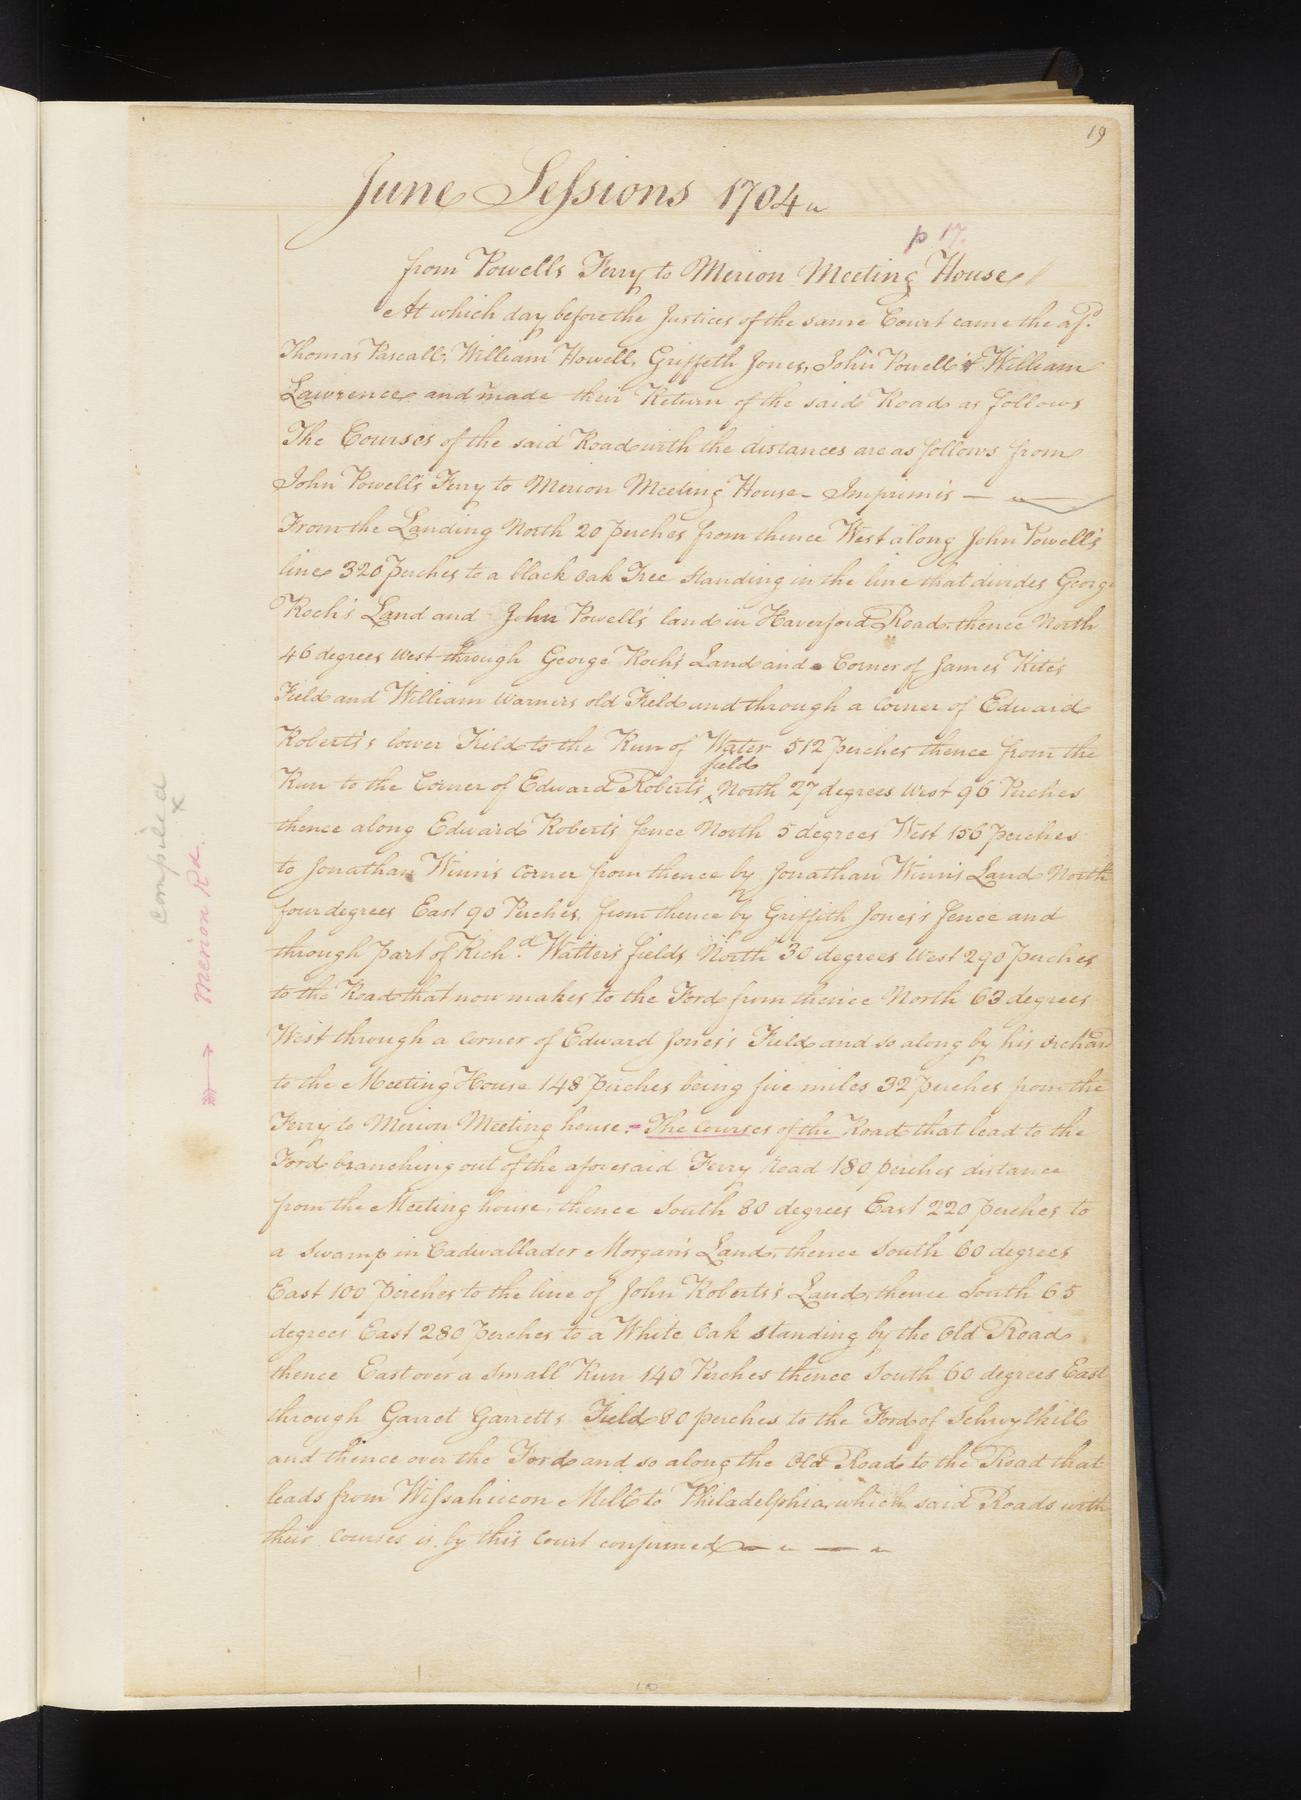 19
June Sessions 1704
p 17.
from Powells Ferry to Merion Meeting House
At which day before the Justices of the same Court came the afsd.
Thomas Pascall, William Howell, Griffeth Jones, John Powell & William
Lawrence and made their Return of the said Road as follows
The Courses of the said Road with the distances are as follows from
John Powell's Ferry to Merion Meeting House - Imprimis —
From the Landing North 20 perches from thence West along John Powell's
line 320 perches to a black oak Tree standing in the line that divides George
Roch's Land and John Powell's land in Haverford Road, thence North
46 degrees West through George Roch's Land and Corner of James Kite's
Field and William Warners old Field and through a corner of Edward
Roberts's lower Field to the Run of Water 512 perches thence from the
field
Run to the Corner of Edward Roberts ‸ North 27 degrees West 96 Perches
thence along Edward Roberts fence North 5 degrees West 156 perches
to Jonathan Winn's corner from thence by Jonathan Winn's Land North
four degrees East 90 Perches, from thence by Griffith Jones's fence and
through part of Richd. Walter's fields North 30 degrees West 290 perches
to the Road that now makes to the Ford from thence North 63 degrees
West through a corner of Edward Jones's Field and so along by his orchard
to the Meeting House 148 perches being five miles 32 perches from the
Ferry to Merion Meeting house. - The Courses of the Road that lead to the
Ford branching out of the aforesaid Ferry Road 180 perches distance
from the Meeting house, thence South 80 degrees East 220 perches to
a Swamp in Cadwallader Morgan's Land, thence South 60 degrees
East 100 perches to the line of John Roberts's Land, thence South 65
degrees East 280 perches to a White Oak standing by the Old Road
thence East over a small Run 140 Perches thence South 60 degrees East
through Garret Garretts Field 80 perches to the Ford of Schuylkill
and thence over the Ford and so along the Old Road to the Road that
leads from Wissahiccon Mill to Philadelphia, which said Roads with
their courses is by this Court confirmed —
compiled
x
→ Merion Rd.